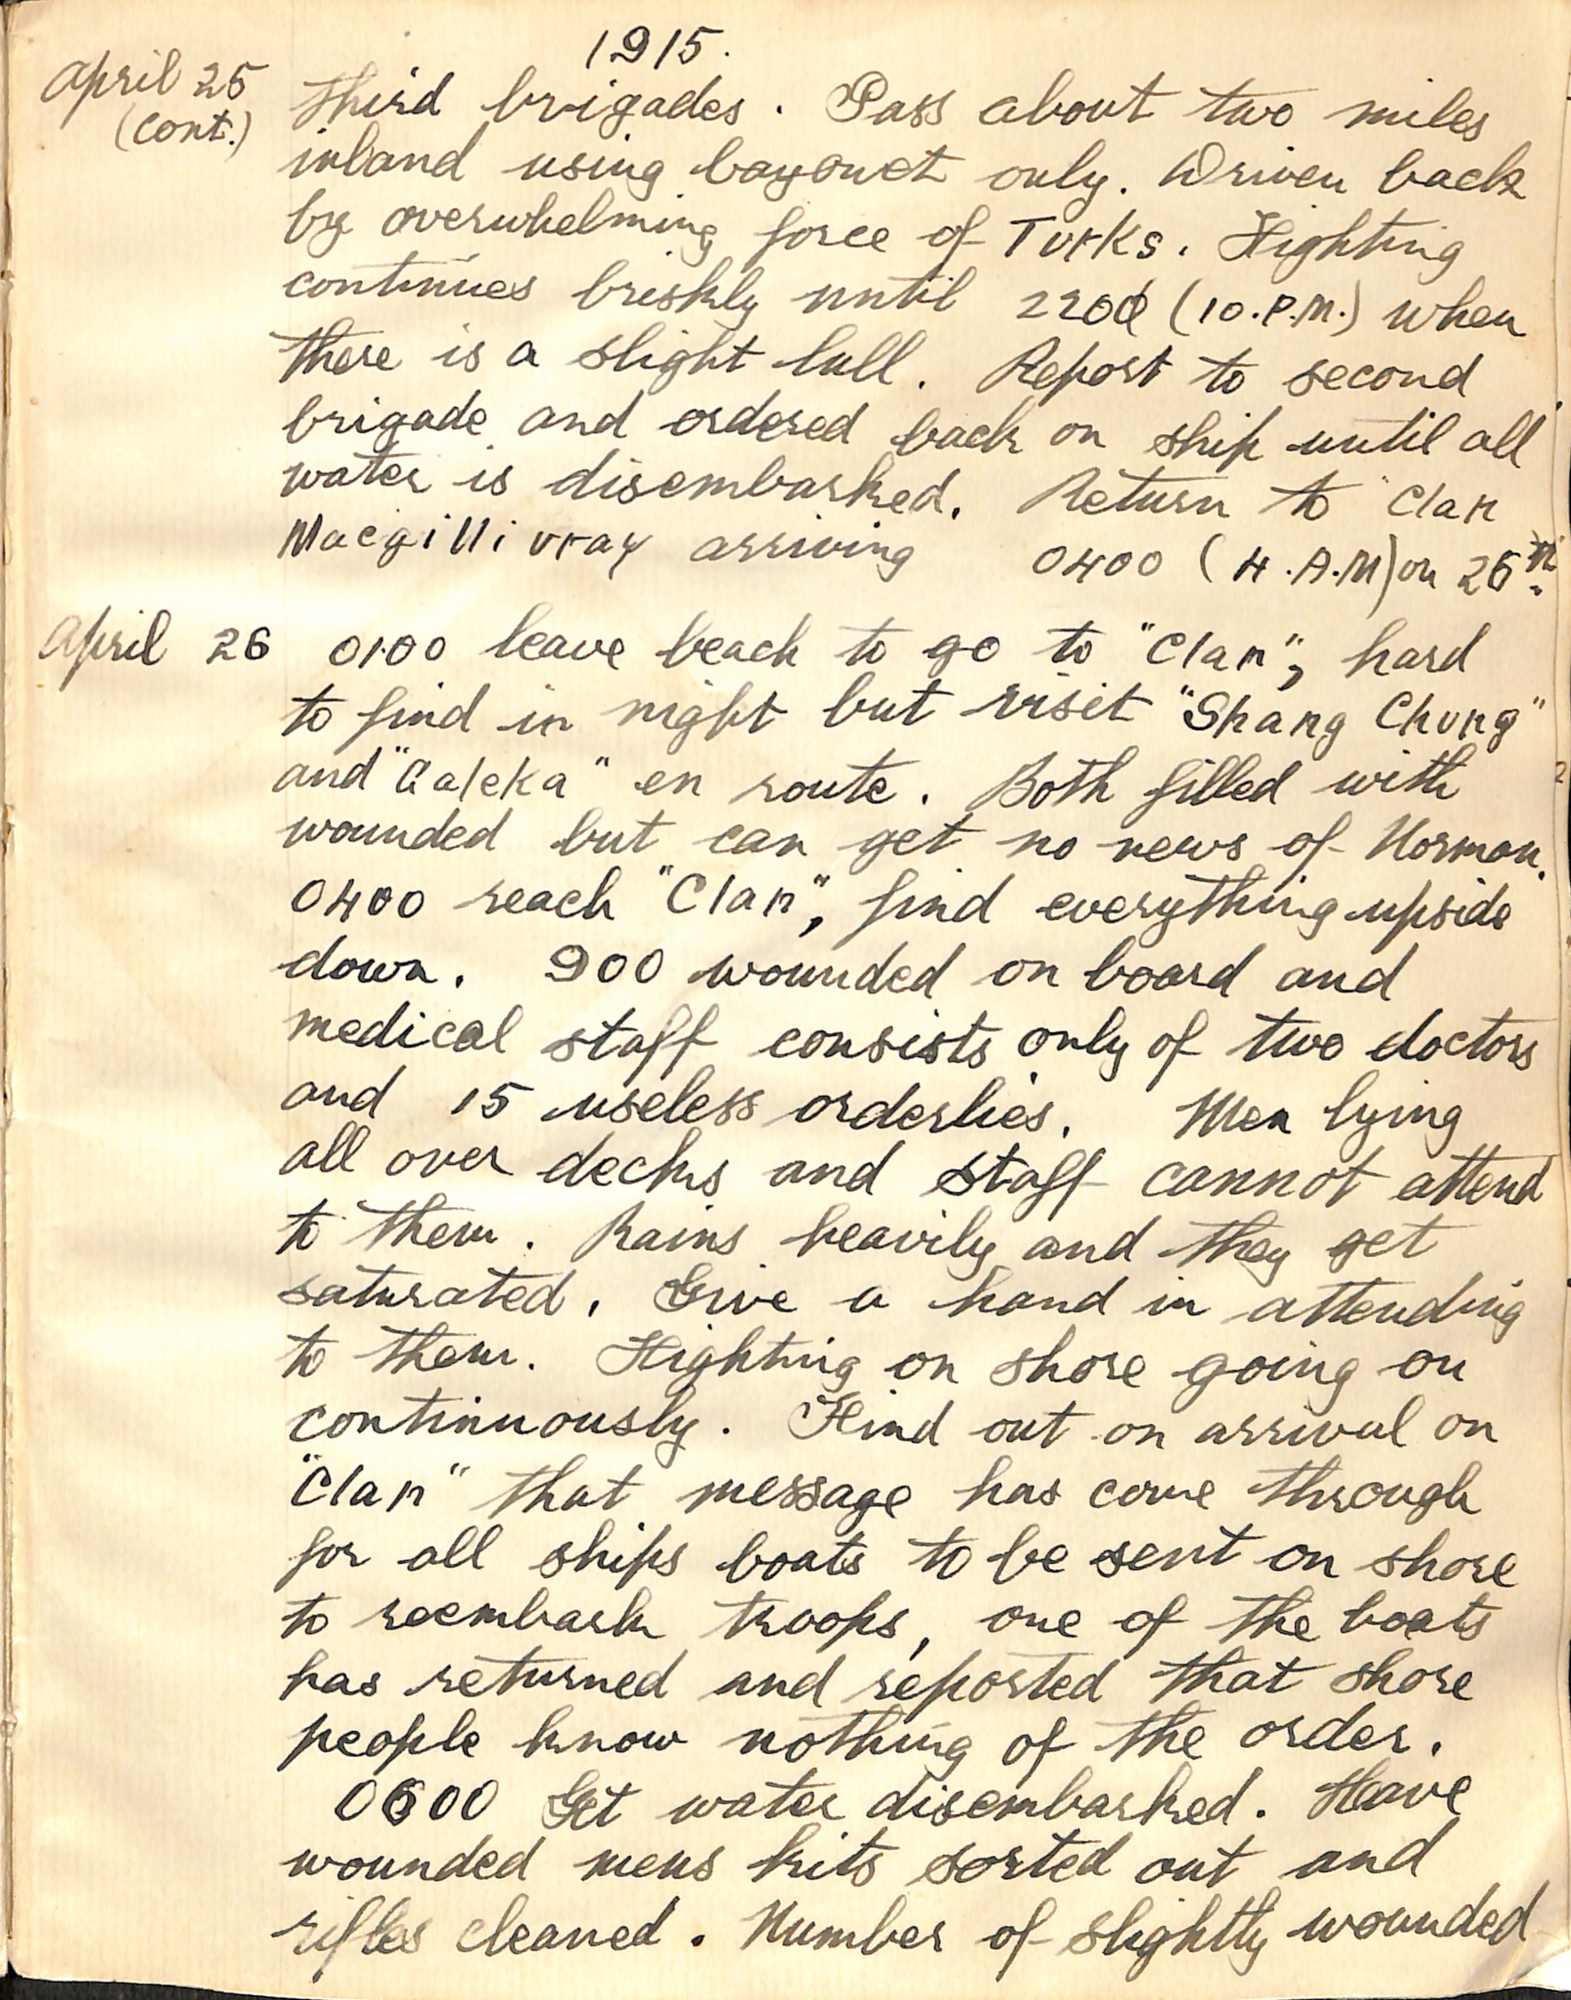 1915.
April 25 third brigades. Pass about two miles
(cont.) inland using bayonet only. Driven back
by overwhelming force of Turks. Fighting
continues briskly until 2200 (10.P.M.) when
there is a slight lull. Report to second
brigade and ordered back on ship until all
water is disembarked. Return to Clan
Macgillivray arriving 0400 (4.A.M) on 26th.
April 26 0100 leave beach to go to "Clan", hard
to find in night but visit "Shang Chung"
and "Galeka" en route. Both filled with
wounded but can get no news of Norman.
0400 reach "Clan", find everything upside
down. 900 wounded on board and
medical staff consists only of two doctors
and 15 useless orderlies. Men lying
all over decks and staff cannot attend
to them. Rains heavily and they get
saturated. Give a hand in attending
to them. Fighting on shore going on
continuously. Find out on arrival on
"Clan" that message has come through
for all ships boats to be sent on shore
to reembark troops, one of the boats
has returned and reported that shore
people know nothing of the order.
0600 Get water disembarked. Have
wounded mens kits sorted out and
rifles cleaned. Number of slightly wounded